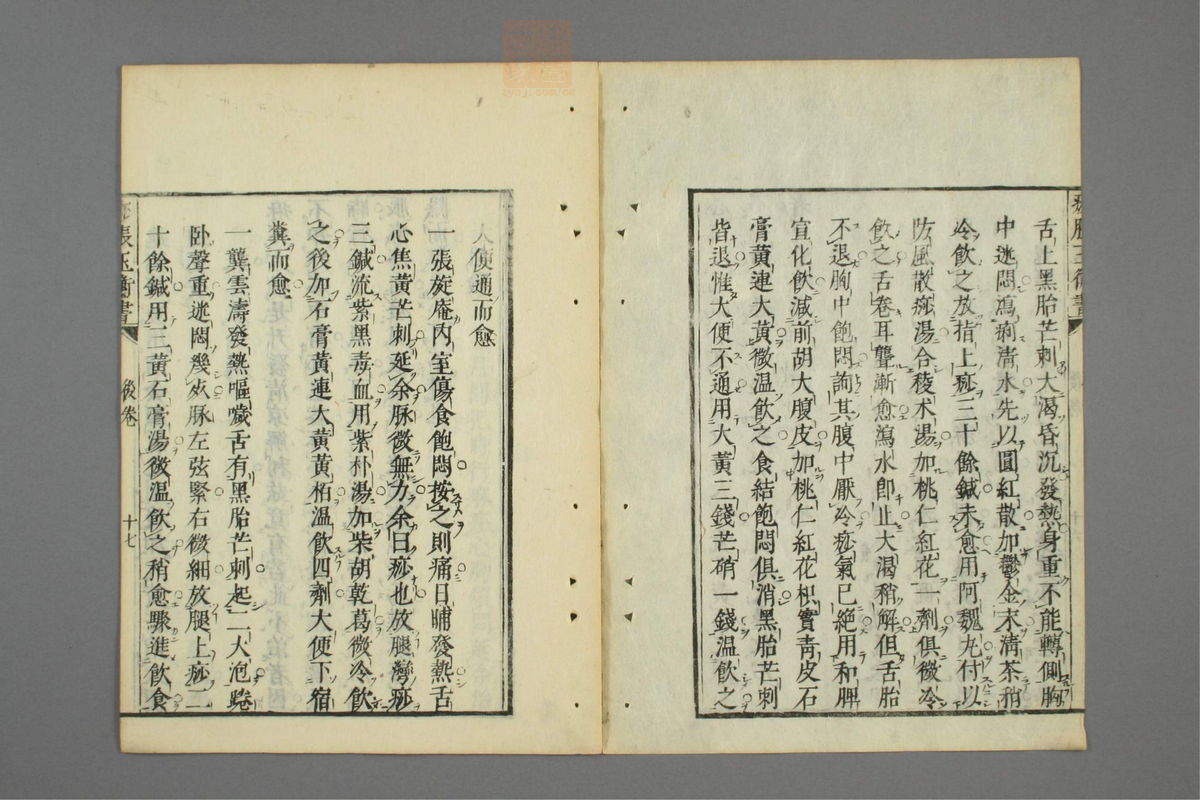 舌上黑胎芒刺大渴昏沉發熱身重不能轉側胸
中迷悶瀉痢清水先以圓紅散加鬱金末清茶稍
冷飲之放指上痧三十餘鍼未愈用阿魏丸付以
防風散痧湯合稜朮湯加桃仁紅花一劑俱微冷
飲之舌卷耳聾漸愈瀉水即止大渴稍解但舌胎
不退胸中飽悶詢其腹中厭冷痧氣已絕用和脾
宜化飲減前胡大腹皮加桃仁紅花枳實青皮石
膏黃連大黃微温飲之食結飽悶俱消黑胎芒刺
皆退惟大便不通用大黃三錢芒硝一錢温飲之
大便通而愈
一張旋庵內室傷食飽悶按之則痛日晡發熱舌
心焦黃芒刺延余脉微無力余曰痧也放腿灣痧
三鍼流紫黑毒血用紫朴湯加柴胡乾葛微冷飲
之後加石膏黃連大黃黃栢温飲四劑大便下宿
糞而愈
一龔雲濤發熱嘔噦舌有黑胎芒刺起二大泡踡
臥聲重迷悶幾灰脉左弦緊右微細放腿上痧二
十餘鍼用三黃石膏湯微温飲之稍愈驟進飲食
痧脹玉衡書
後卷
十七